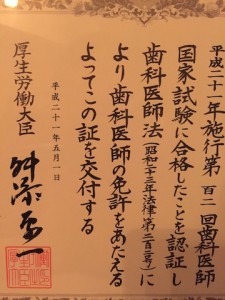 平成二十一年施行第百二回歯科医師
国家試験に合格したことを認証し
歯科医師法（昭和二十三年法律第二百二号）に
より歯科医師の免許をあたえる
よってこの証を交付する
平成二十一年五月一日
厚生労働大臣
舛添要一